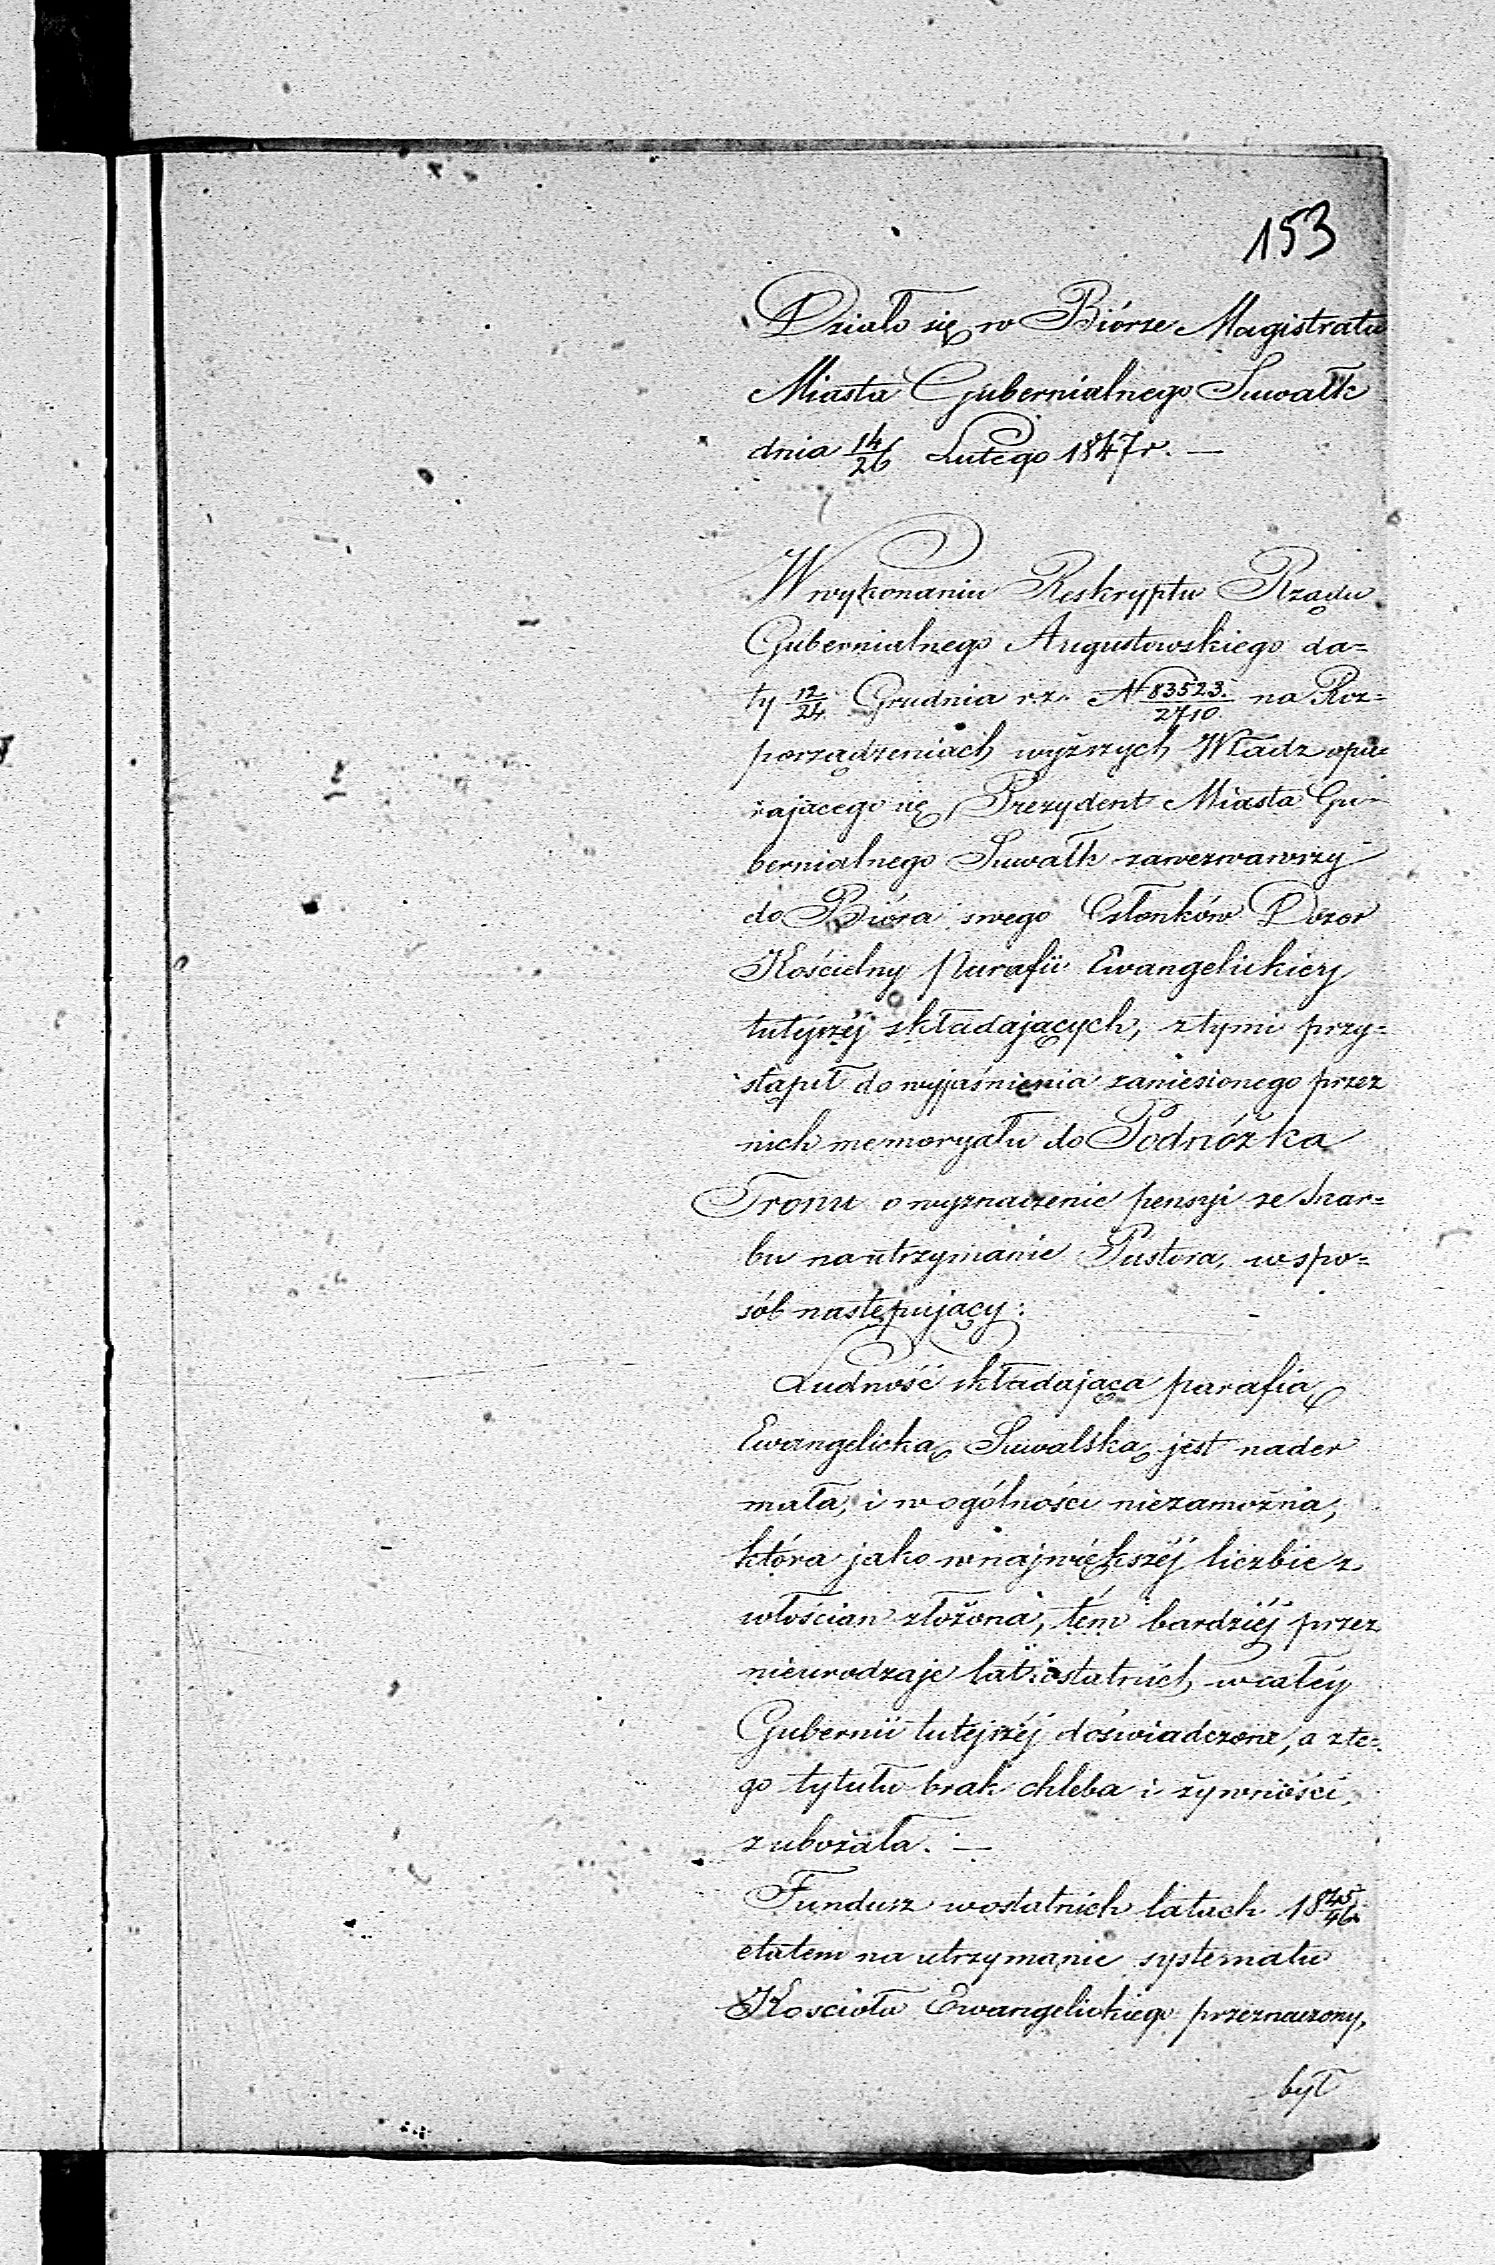 153
Działo się w Biórze Magistratu
Miasta Gubernialnego Suwałk
dnia 14/26 Lutego 1847 r. —
W wykonaniu Reskryptu Rządu
Gubernialnego Augustowskiego da=
ty 12/24 Grudnia r. z. N 83523/2710 na Roz=
porządzeniach wyższych Władz opie=
rającego się, Prezydent Miasta Gu=
bernialnego Suwałk zawezwawszy
do Bióra swego Członków Dozor
Kościelny Parafii Ewangelickiey
tutéjszéj składających, z tymi przy=
stąpił do wyjaśnienia zaniesionego przez
nich memoryału do Podnóżka
Tronu o wyznaczenie pensyi ze skar=
bu na utrzymanie Pastora, w spo=
sób następujący:
Ludność składająca parafią
Ewangelicką Suwalską jest nader
mała, i w ogólności niezamożna,
która jako w największéj liczbie z
włościan złożona, tém bardziéj przez
nieurodzaje lat ostatnich w całéy
Gubernii tutejszéj doświadczone, a z te=
go tytułu brak chleba i żywności,
zubożała. —
Fundusz w ostatnich latach 1845/46
etatem na utrzymanie systematu
Kościoła Ewangelickiego przeznaczony,
był